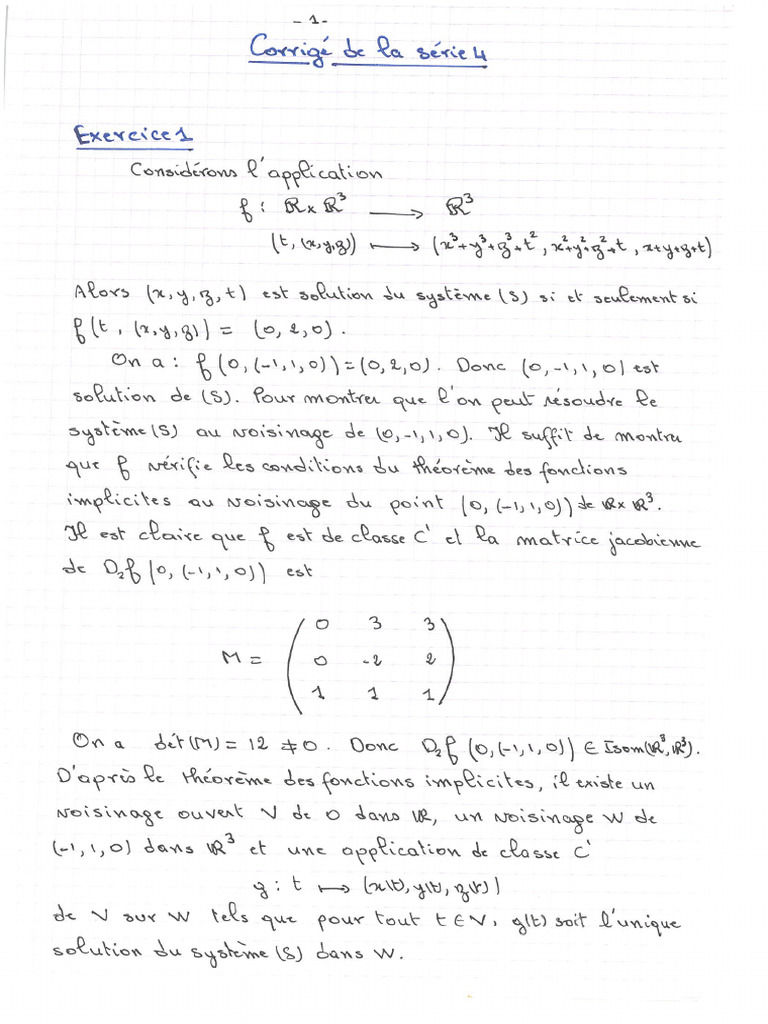 - 1 -
Corrigé de la série 4
Exercice 1
Considérons l'application
f : ℝ × ℝ³ ⟶ ℝ³
(t, (x,y,z)) ⟼ (x³+y³+z³+t², x²+y²+z²+t, x+y+z+t)
Alors (x,y,z,t) est solution du système (S) si et seulement si
f(t, (x,y,z)) = (0,2,0).
On a : f(0,(-1,1,0)) = (0,2,0). Donc (0,-1,1,0) est
solution de (S). Pour montrer que l'on peut résoudre le
système (S) au voisinage de (0,-1,1,0). Il suffit de montrer
que f vérifie les conditions du théorème des fonctions
implicites au voisinage du point (0,(-1,1,0)) de ℝ × ℝ³.
Il est claire que f est de classe C¹ et la matrice jacobienne
de D₂f(0,(-1,1,0)) est
0 3 3
M = 0 -2 2
1 1 1
On a dét(M) = 12 ≠ 0. Donc D₂f(0,(-1,1,0)) ∈ Isom(ℝ³,ℝ³).
D'après le théorème des fonctions implicites, il existe un
voisinage ouvert V de 0 dans ℝ, un voisinage W de
(-1,1,0) dans ℝ³ et une application de classe C¹
g : t ⟼ (x(t), y(t), z(t))
de V sur W tels que pour tout t ∈ V, g(t) soit l'unique
solution du système (S) dans W.